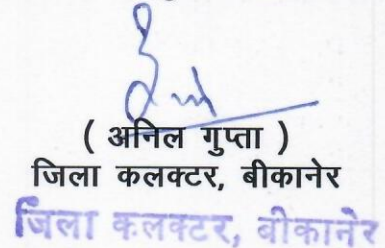 ( अनिल गुप्ता )
जिला कलक्टर, बीकानेर
जिला कलक्टर, बीकानेर